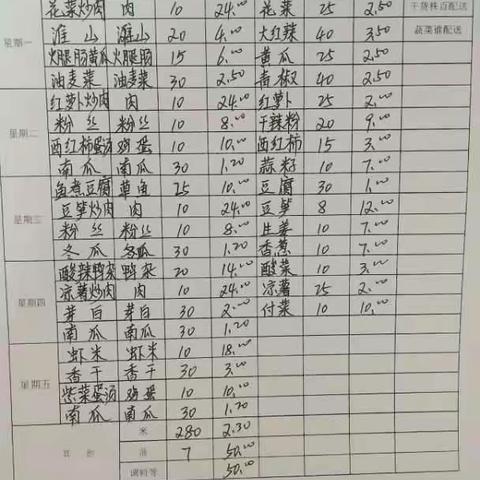 花菜炒肉 肉 10 24.00 花菜 25 2.50 干货株百配送
星期一 淮山 淮山 20 4.00 大红辣 40 3.50 蔬菜谁配送
火腿肠黄瓜 火腿肠 15 6.00 黄瓜 25 2.50
油麦菜 油麦菜 30 2.50 青椒 40 2.50
红萝卜炒肉 肉 10 24.00 红萝卜 25 2.00
星期二 粉丝 粉丝 10 8.00 干辣粉 20 9.00
西红柿蛋汤 鸡蛋 10 10.00 西红柿 15 3.00
南瓜 南瓜 30 1.20 蒜籽 10 7.00
鱼煮豆腐 草鱼 25 10.00 豆腐 30 1.00
星期三 豆笋炒肉 肉 10 24.00 豆笋 8 12.00
粉丝 粉丝 10 8.00 生姜 10 7.00
冬瓜 冬瓜 30 1.20 香葱 10 7.00
酸辣鸭杂 鸭杂 20 14.00 酸菜 10 3.00
星期四 凉薯炒肉 肉 10 24.00 凉薯 25 2.00
芽白 芽白 30 2.00 付菜 10 10.00
南瓜 南瓜 30 1.20
虾米 虾米 10 18.00
星期五 香干 香干 30 3.00
紫菜蛋汤 鸡蛋 10 10.00
南瓜 南瓜 30 1.20
米 280 2.30
油 7 50.00
调料等 50.00